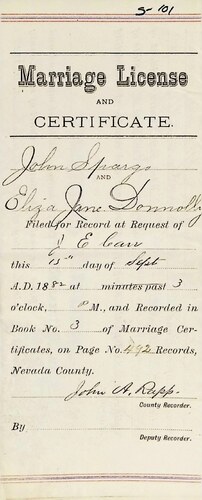 S-101
Marriage License
AND
CERTIFICATE.
John Spargo
AND
Eliza Jane Donnolly
Filed for Record at Request of
J E Carr
this 15th day of Sept
A.D. 1882 at minutes past 3
o'clock, P M., and Recorded in
Book No. 3 of Marriage Cer-
tificates, on Page No. 492 Records,
Nevada County.
John A. Rapp
County Recorder.
By
Deputy Recorder.